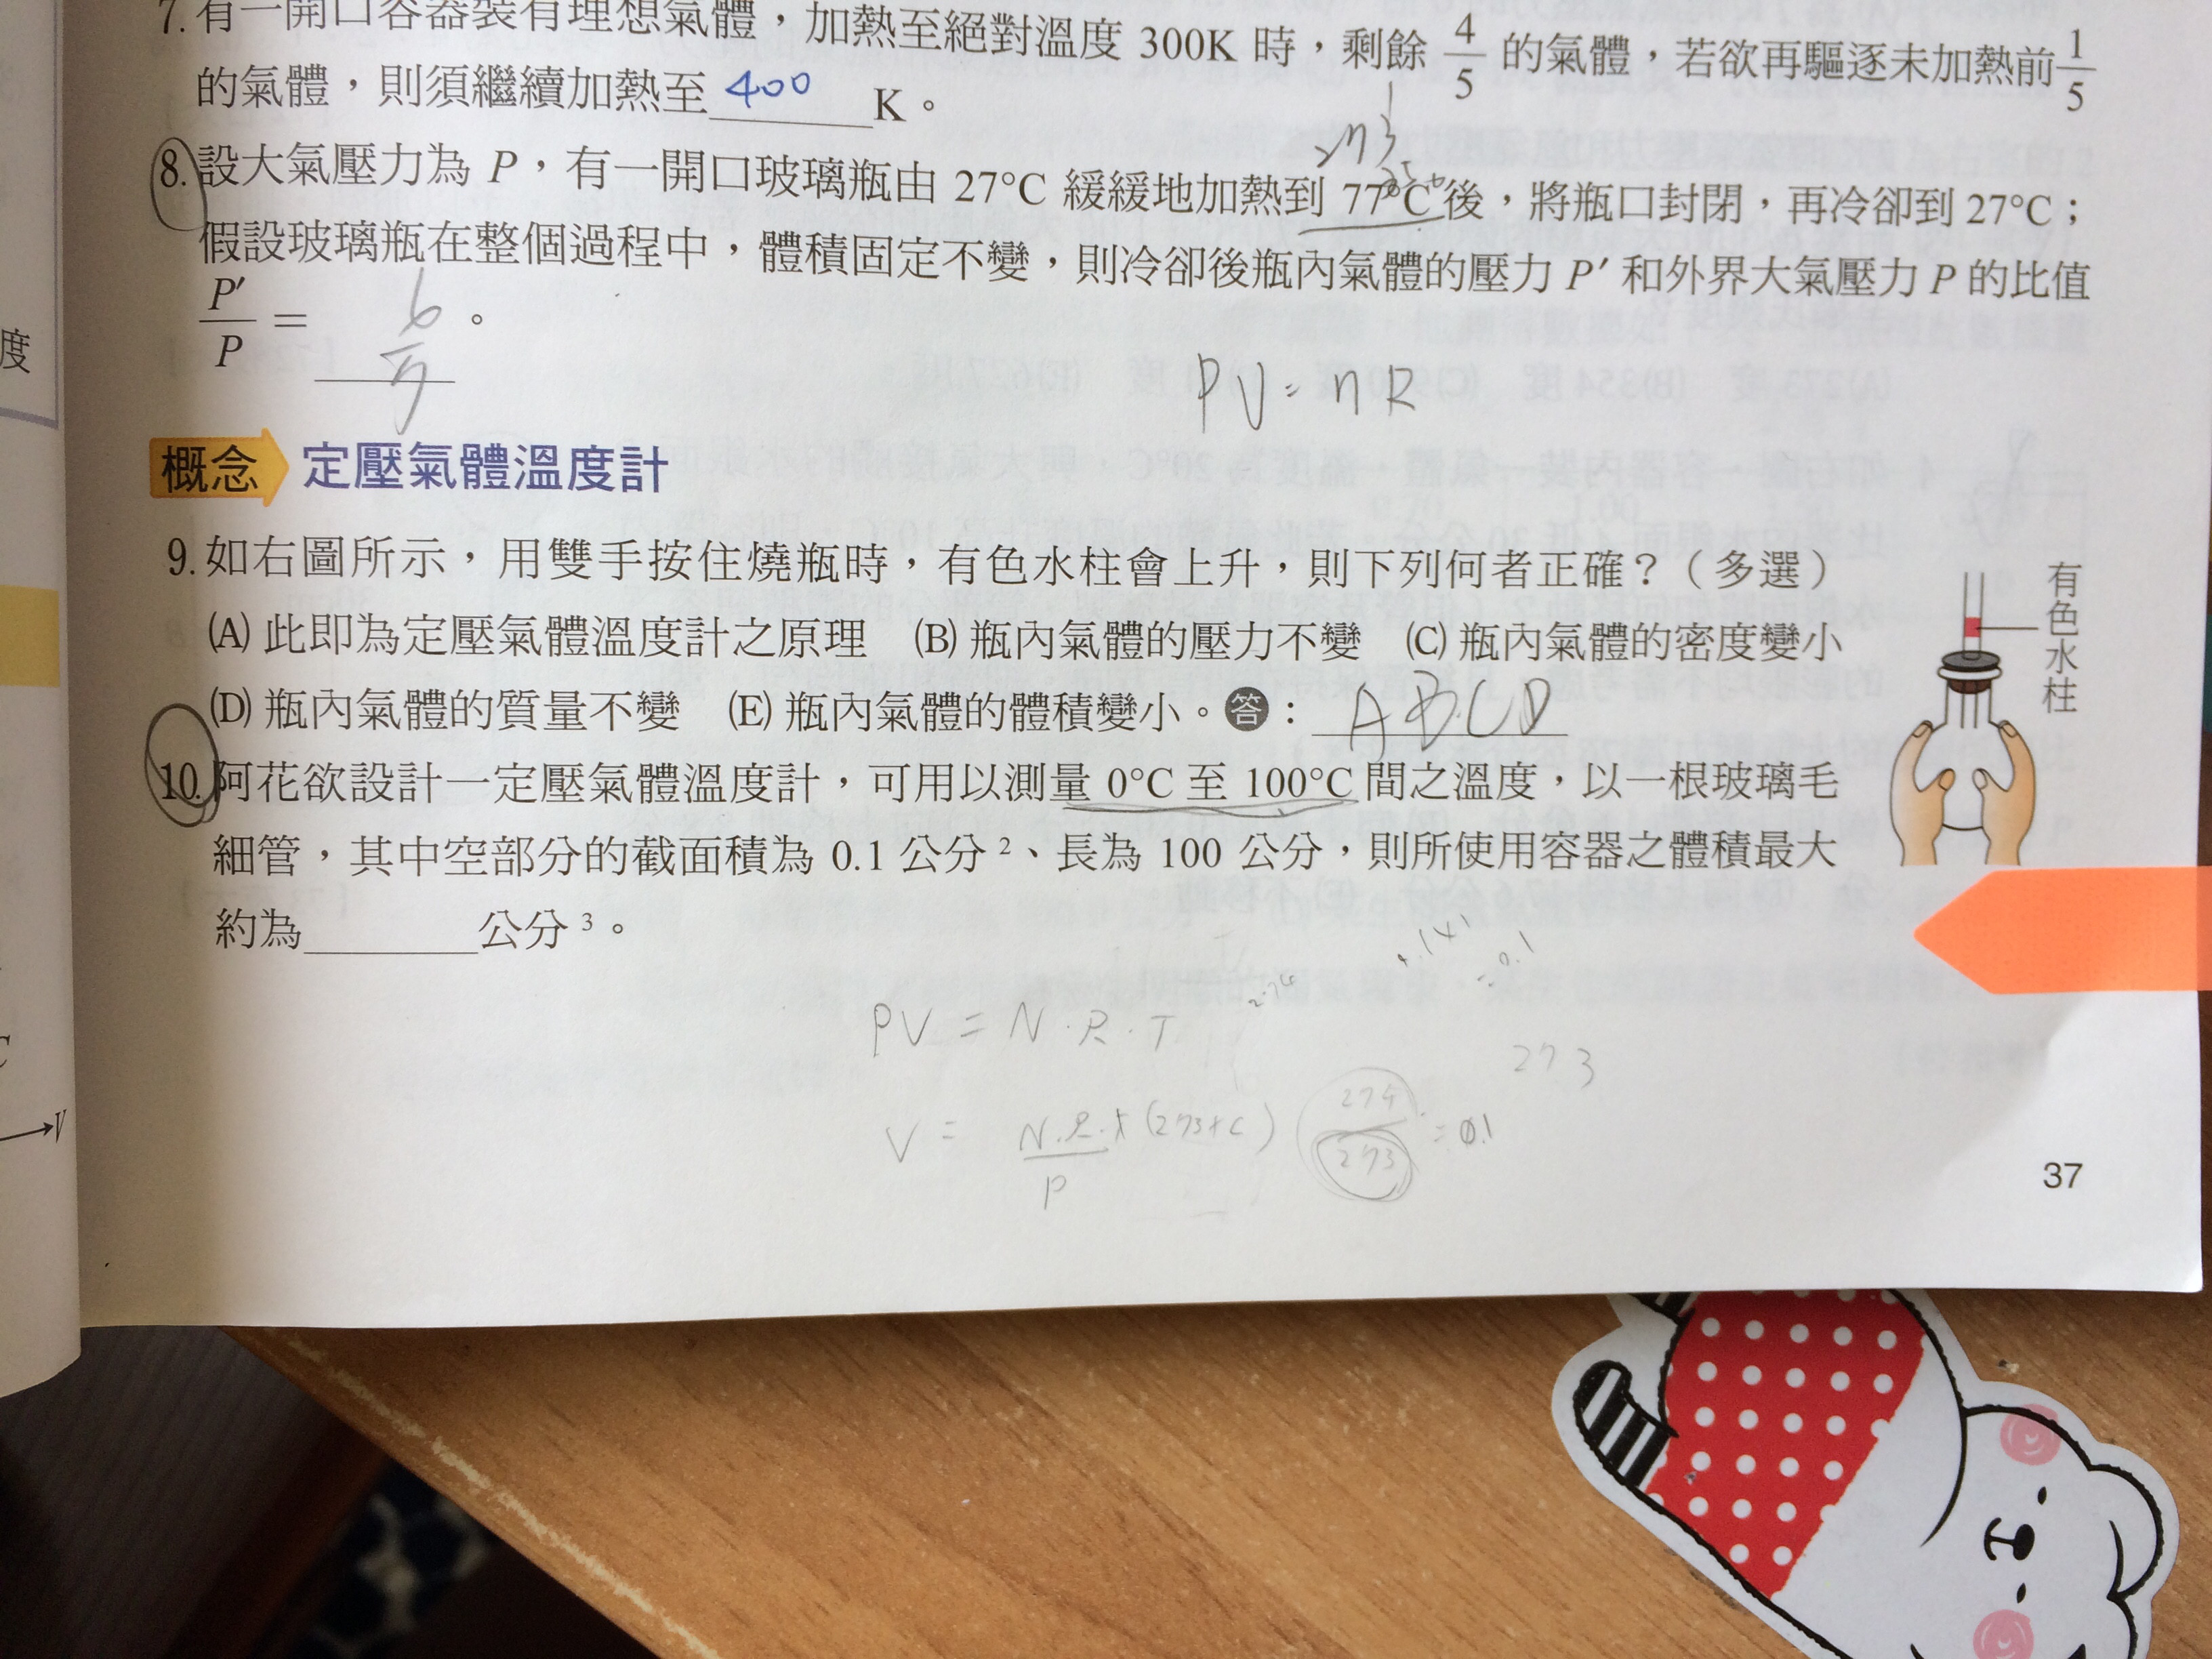 7. 有一開口容器裝有理想氣體，加熱至絕對溫度 300K 時，剩餘 4/5 的氣體，若欲再驅逐未加熱前 1/5
的氣體，則須繼續加熱至 400 K。
273
8. 設大氣壓力為 P，有一開口玻璃瓶由 27°C 緩緩地加熱到 77°C 後，將瓶口封閉，再冷卻到 27°C；
假設玻璃瓶在整個過程中，體積固定不變，則冷卻後瓶內氣體的壓力 P′ 和外界大氣壓力 P 的比值
P′/P = 6/7。
PV = nR
度
概念 定壓氣體溫度計
9. 如右圖所示，用雙手按住燒瓶時，有色水柱會上升，則下列何者正確？（多選）
(A) 此即為定壓氣體溫度計之原理 (B) 瓶內氣體的壓力不變 (C) 瓶內氣體的密度變小
(D) 瓶內氣體的質量不變 (E) 瓶內氣體的體積變小。答：ABCD
有色水柱
10. 阿花欲設計一定壓氣體溫度計，可用以測量 0°C 至 100°C 間之溫度，以一根玻璃毛
細管，其中空部分的截面積為 0.1 公分²、長為 100 公分，則所使用容器之體積最大
約為＿＿＿＿公分³。
PV = N·R·T
= 0.1
273
V = N.R.x(273+C)/P
274/273 = 0.1
V
37